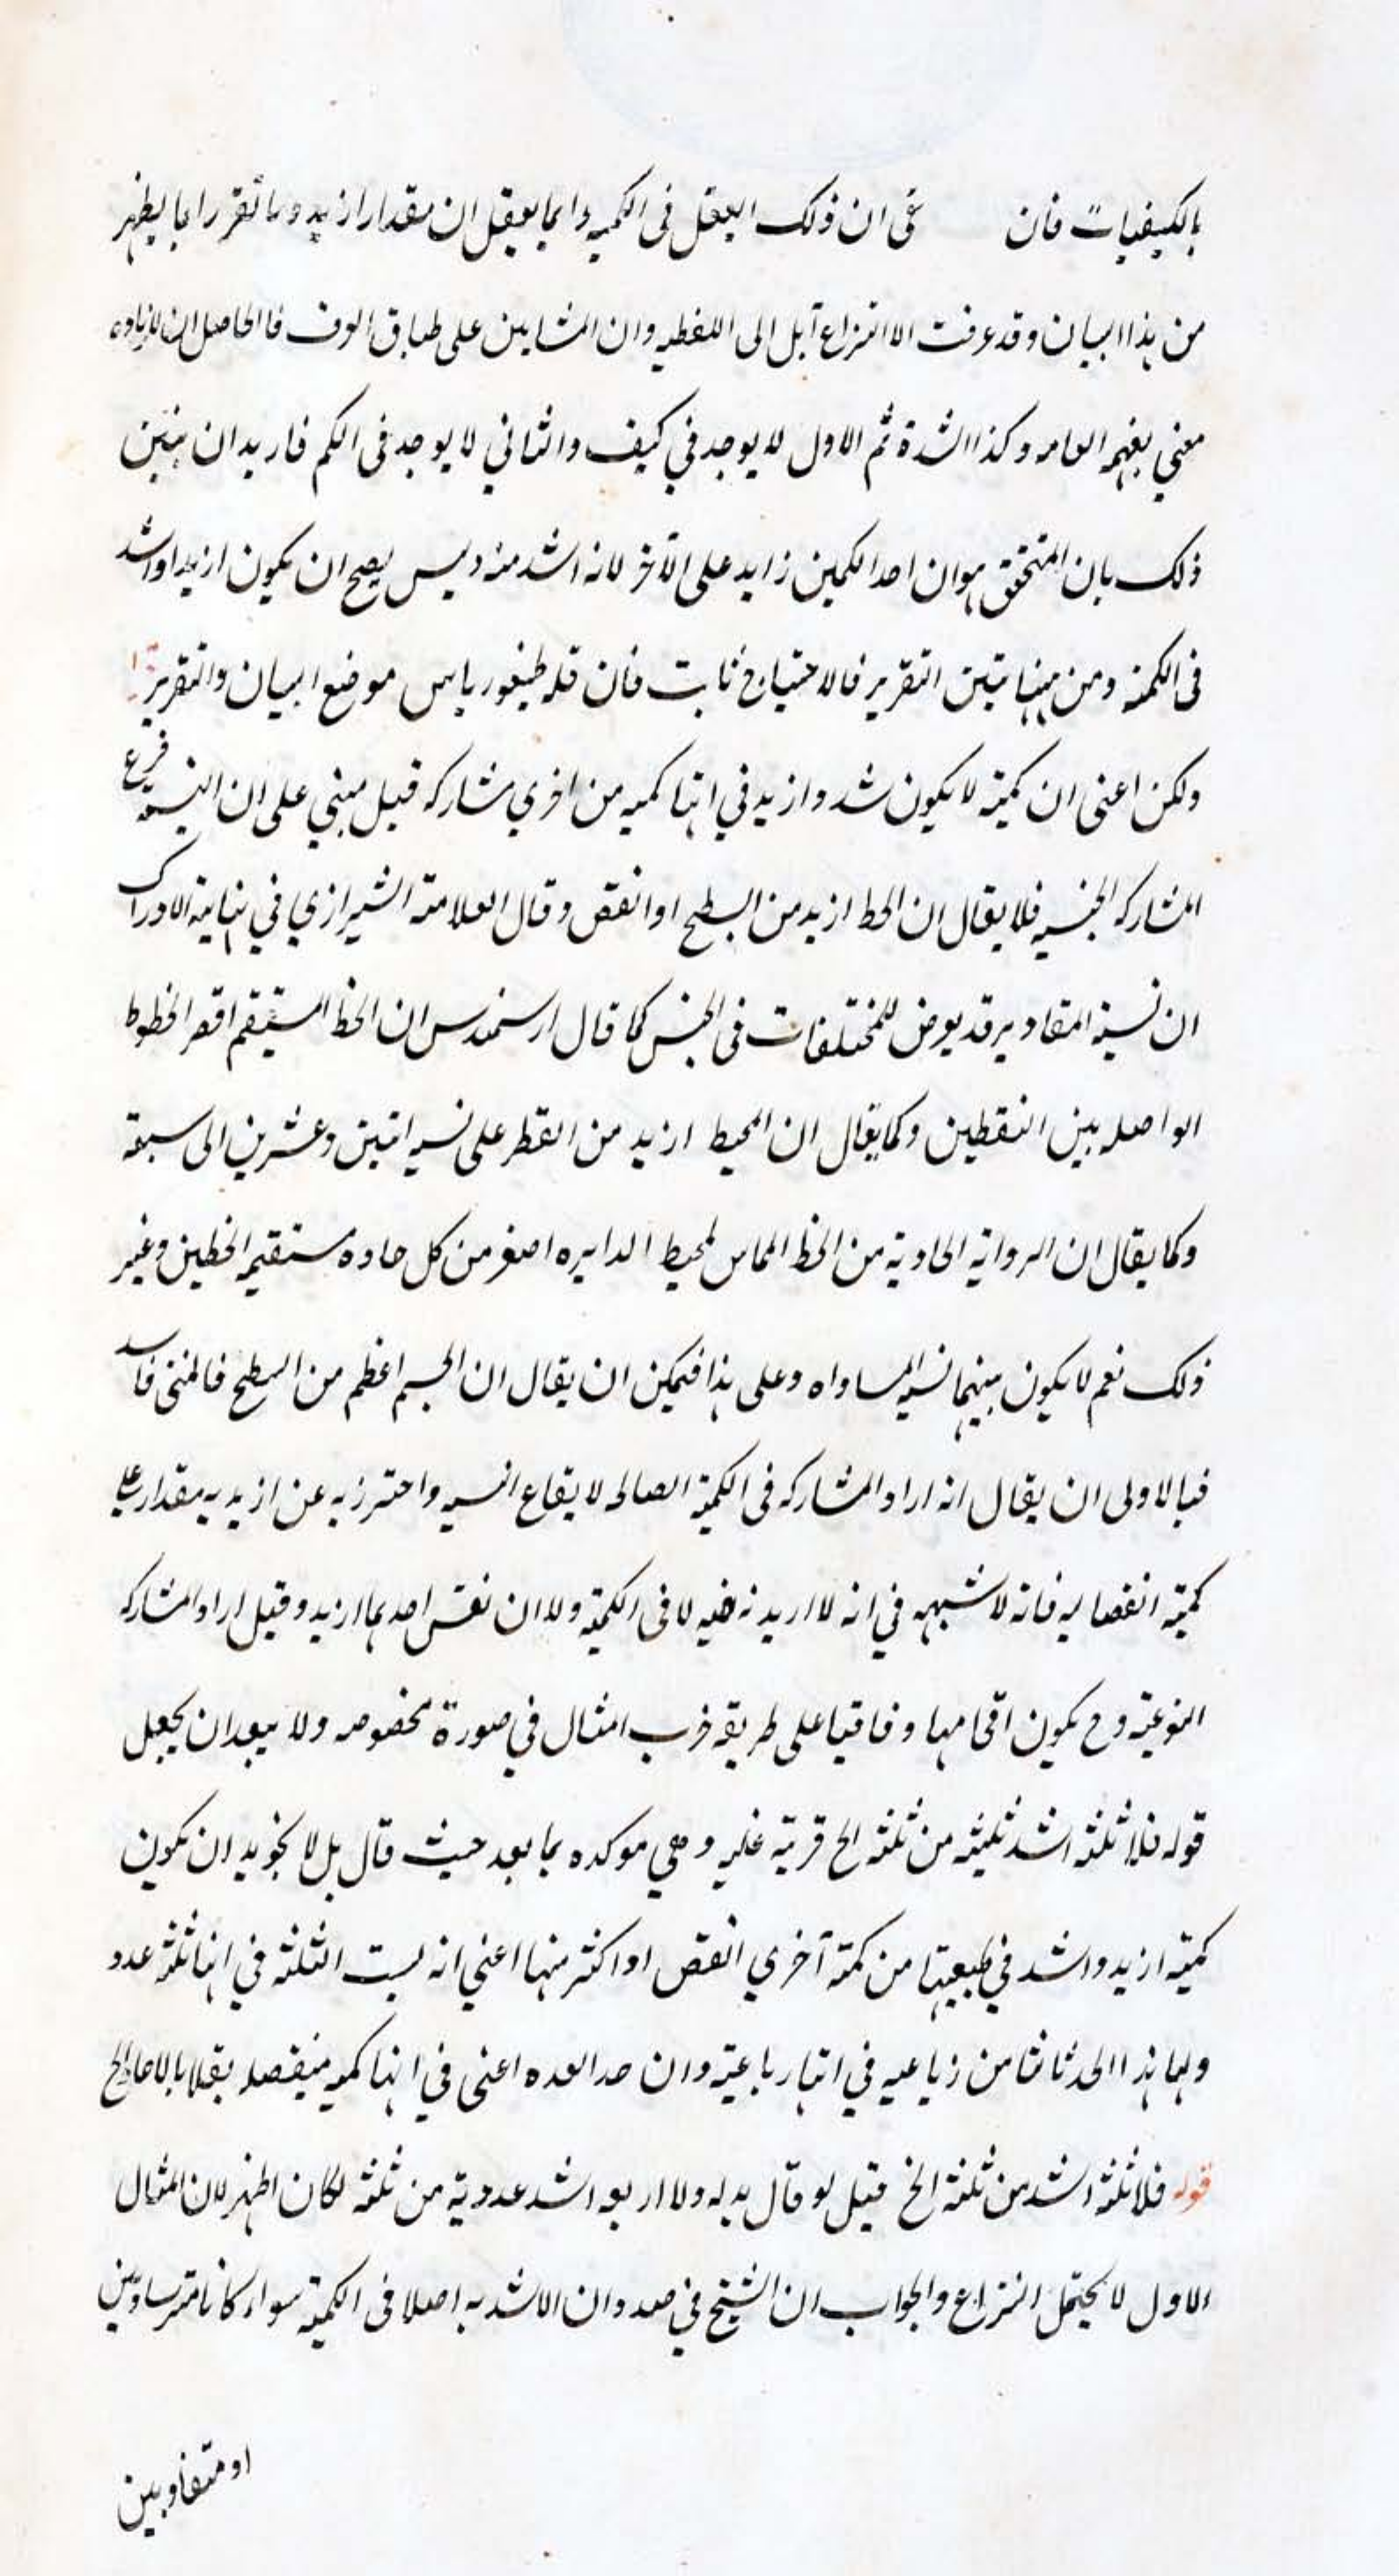 بالكيفيات فان على ان ذلك اليعقل فى الكميه وانما يعقل ان مقدارا ازيد وما تقرر انما يظهر
من هذا البيان وقد عرفت الا النزاع آيل الى اللفظيه وان المشايين على طباق الوف فا الحاصل ان لازياده
معني يفهمه العامه وكذا الشدة ثم الاول لا يوجد في كيف والثاني لا يوجد فى الكم فاريد ان يتبين
ذلك بان المتحقق هو ان احد الكمين زايد على الآخر لانه اشد منه وليس يصح ان يكون ازيد او اشد
فى الكمية ومن ههنا تبين التقرير فالاحتياج ثابت فان قله طيغورياس موضع البيان والتقرير
ولكن اعنى ان كمية لا يكون شد وازيد في انها كميه من اخري مشاركه قيل مبني على ان النسبه فرع
المشاركه الجنسيه فلا يقال ان الخط ازيد من السطح او انقص وقال العلامة الشيرازي في نهاية الادراك
ان نسبة المقادير قد يعرض للمختلفات فى الجنس كما قال ارسمندس ان الخط المستقيم اقصر الخطوط
الواصله بين النقطين وكما يقال ان المحيط ازيد من القطر على نسبه اثنين وعشرين الى سبعة
وكما يقال ان الروايه الحادية من الخظ المماس لمحيط الدايره اصغر من كل حاده مستقيمه الخطين وغير
ذلك نعم لا يكون بينهما نسبه المساواه وعلى هذا فيمكن ان يقال ان الجسم اعظم من السطح فالمبنى فاسد
فبالاولى ان يقال انه اراد المشاركه فى الكمية الصالحه لا يقاع النسبه واحترز به عن ازيديه مقدار على
كمية انفصاليه فانه لا شبهه في انه لا ازيدية فيه لا فى الكمية ولا ان نفس احدهما ازيد وقيل اراد المشاركه
النوعية وح يكون اقحامها وفاقيا على طريقه ضرب المثال في صورة مخصوصه ولا يبعد ان يجعل
قوله فلا ثلثة اشد ثلثية من ثلثة الخ قرينة عليه وهي موكده بما بعد حيث قال بل لا نجويد ان يكون
كمية ازيد واشد في طبيعتها من كمية آخري انقص او اكثر منها اعني انه ليست الثلثه في انها ثلثة عدد
ولهما هذا الحد ثانثا من رباعيه في انها رباعية وان حد العده اعنى في انها كميه منفصله بقلا بالاحاد الخ
قوله فلا ثلثة اشد من ثلثة الخ قيل لو قال بدله ولا اربعه اشد عددية من ثلثة لكان اظهر لان المثال
الاول لا يحتمل النزاع والجواب ان الشيخ في صدد ان الاشديه اصلا فى الكمية سواء كانا متساويين
او متفاوبين